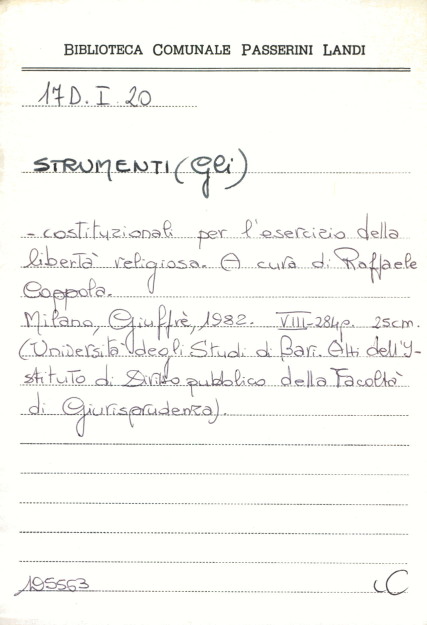 BIBLIOTECA COMUNALE PASSERINI LANDI
17D. I. 20
STRUMENTI (Gli)
- costituzionali per l'esercizio della
libertà religiosa. A cura di Raffaele
Coppola.
Milano, Giuffrè, 1982. VIII-284p. 25cm.
(Università degli Studi di Bari. Atti dell'I-
stituto di Diritto pubblico della Facoltà
di Giurisprudenza).
195563
C